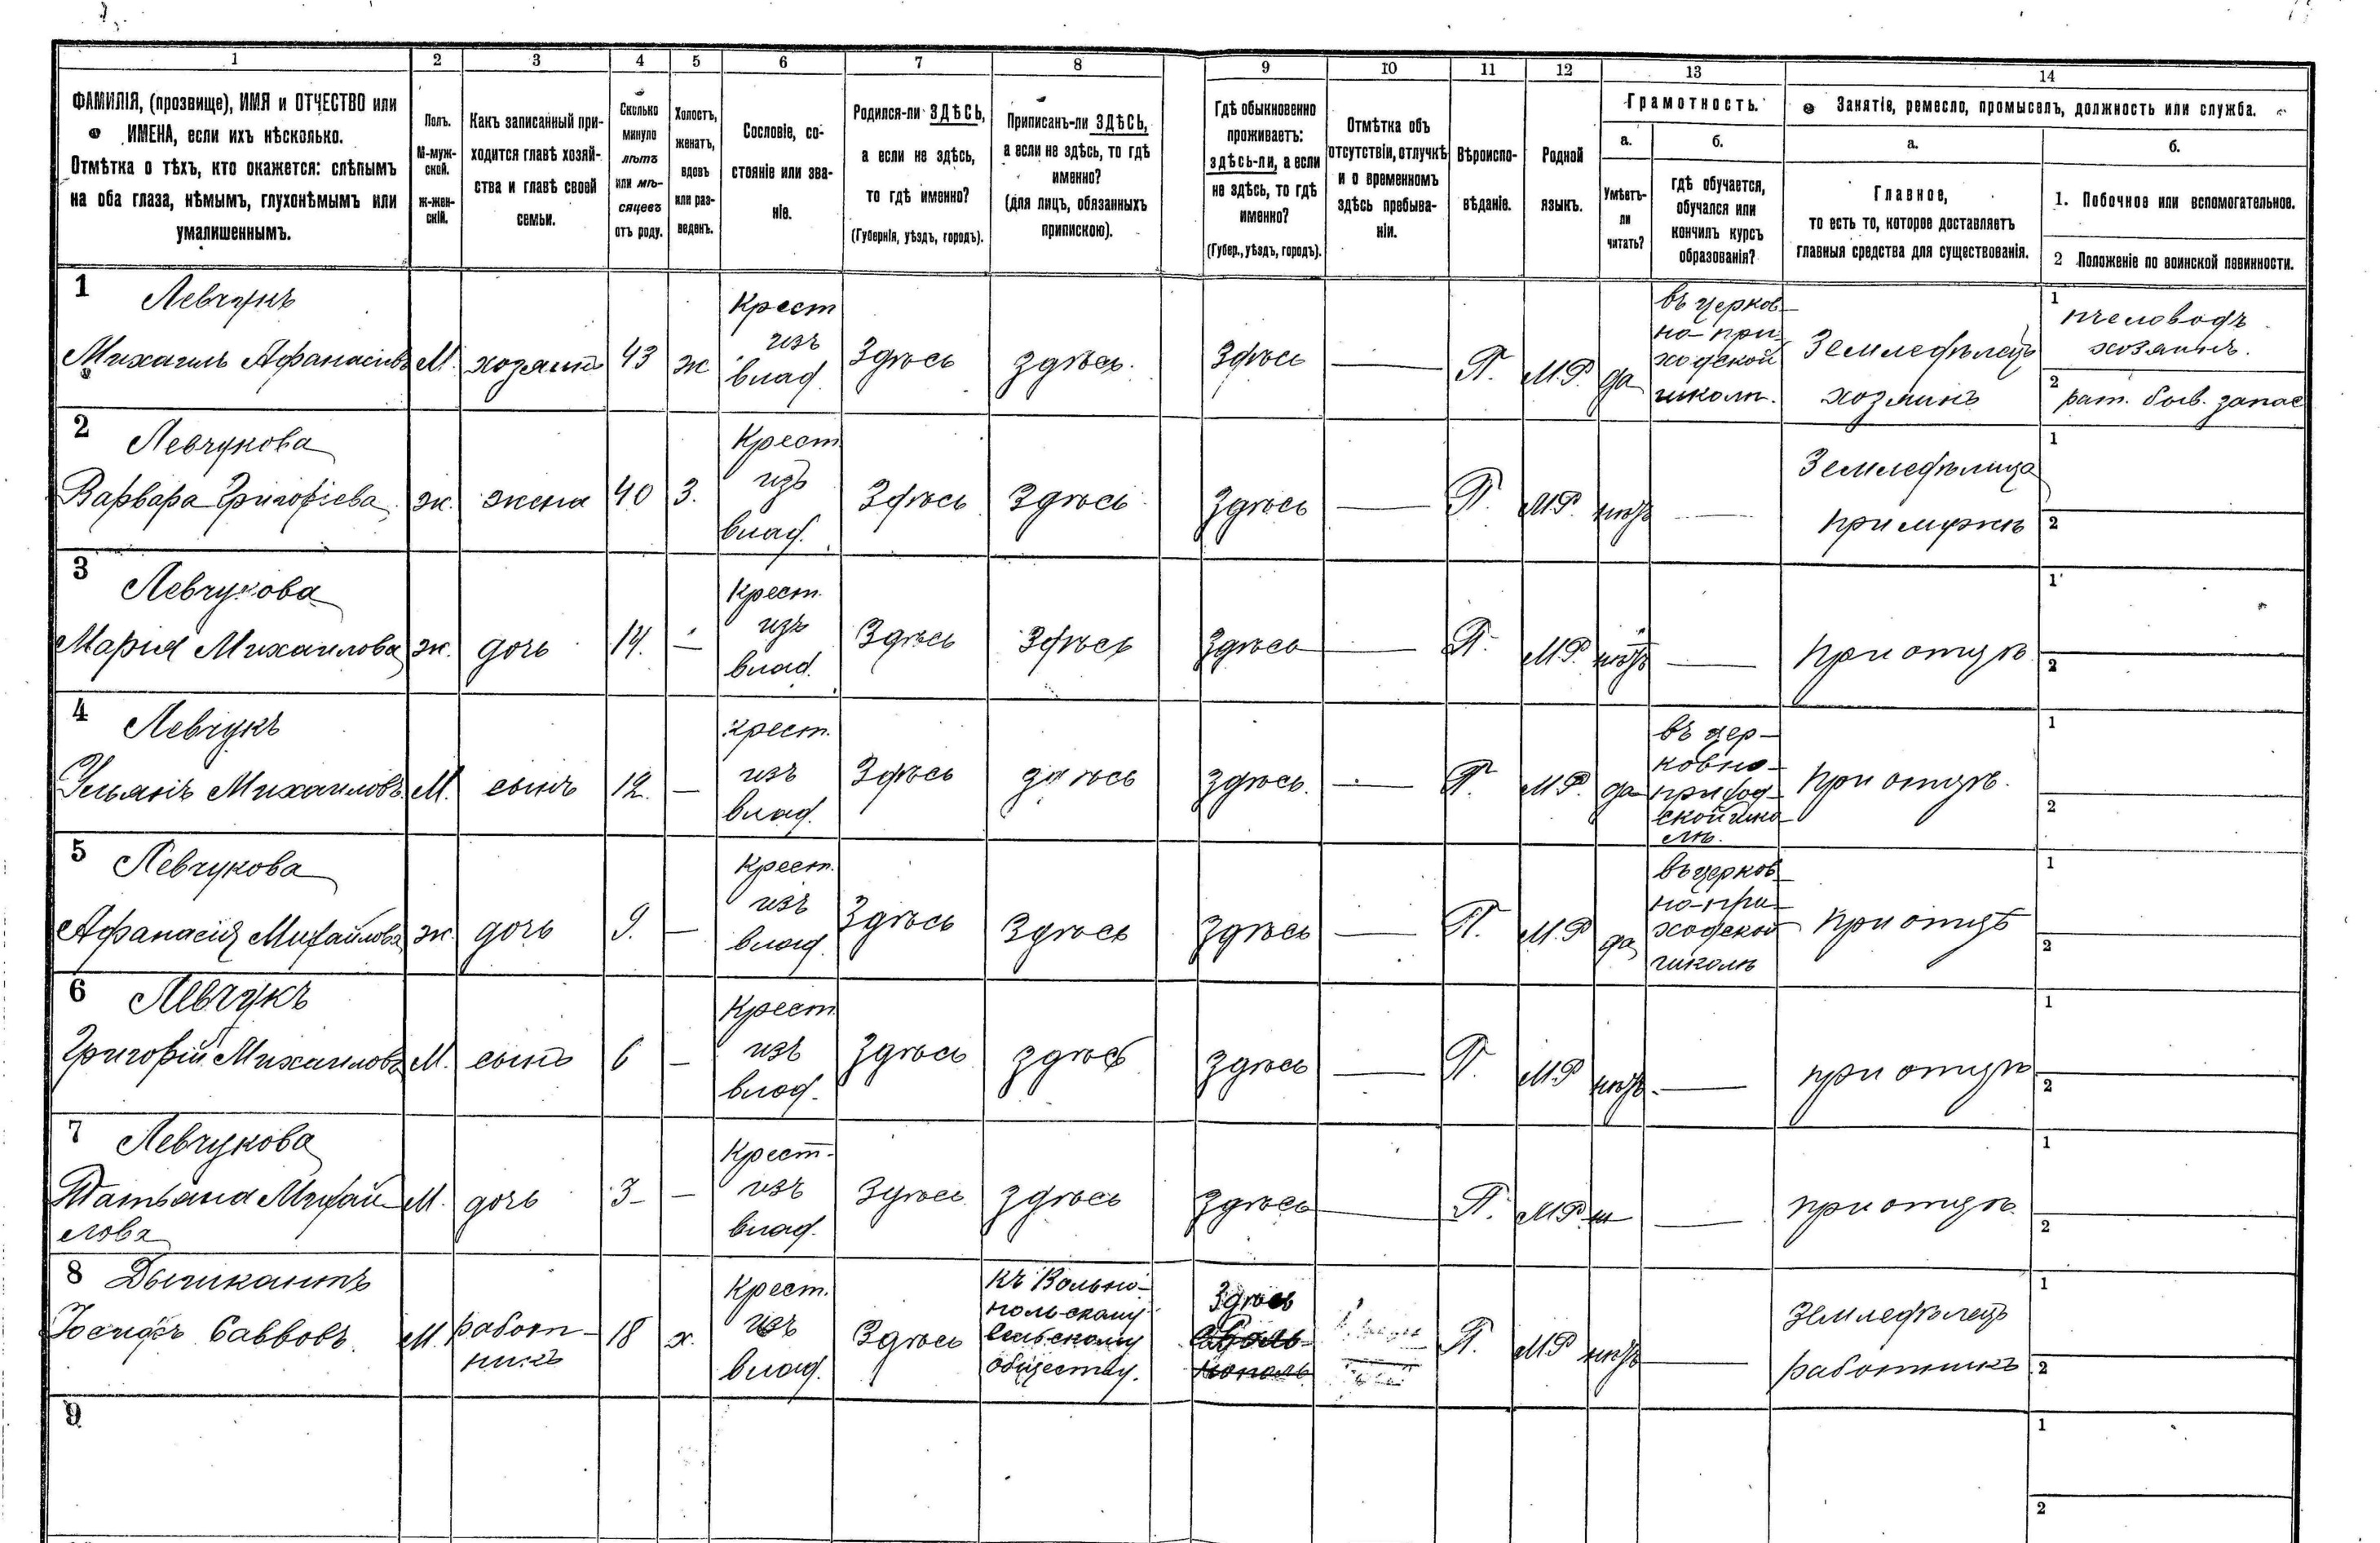 1 2 3 4 5 6 7 8 9 10 11 12 13 14
ФАМИЛІЯ, (прозвище), ИМЯ и ОТЧЕСТВО или
ИМЕНА, если ихъ нѣсколько.
Отмѣтка о тѣхъ, кто окажется: слѣпымъ
на оба глаза, нѣмымъ, глухонѣмымъ или
умалишеннымъ.
Полъ.
М-муж-
ской.
ж-жен-
скій.
Какъ записанный при-
ходится главѣ хозяй-
ства и главѣ своей
семьи.
Сколько
минуло
лѣтъ
или мѣ-
сяцевъ
отъ роду.
Холостъ,
женатъ,
вдовъ
или раз-
веденъ.
Сословіе, со-
стояніе или зва-
ніе.
Родился-ли ЗДѢСЬ,
а если не здѣсь,
то гдѣ именно?
(Губернія, уѣздъ, городъ).
Приписанъ-ли ЗДѢСЬ,
а если не здѣсь, то гдѣ
именно?
(для лицъ, обязанныхъ
припискою).
Гдѣ обыкновенно
проживаетъ:
здѣсь-ли, а если
не здѣсь, то гдѣ
именно?
(Губер., уѣздъ, городъ).
Отмѣтка объ
отсутствіи, отлучкѣ
и о временномъ
здѣсь пребыва-
ніи.
Вѣроиспо-
вѣданіе.
Родной
языкъ.
Грамотность.
а.
Умѣетъ-
ли
читать?
б.
гдѣ обучается,
обучался или
кончилъ курсъ
образованія?
Занятіе, ремесло, промыселъ, должность или служба.
а.
Главное,
то есть то, которое доставляетъ
главныя средства для существованія.
б.
1. Побочное или вспомогательное.
2 Положеніе по воинской повинности.
1 Левчукъ
Михаилъ Афанасіевъ
М.
хозяинъ
43
ж
Крест
изъ
влад.
Здѣсь
здѣсь.
Здѣсь
—
П.
М.Р.
да
въ церков-
но-при-
ходской
школѣ.
Земледѣлецъ
хозяинъ
1 пчеловодъ
хозяинъ.
2 рат. быв. запас
2 Левчукова
Варвара Григоріева
ж.
жена
40
З.
Крест.
изъ
влад.
Здѣсь
Здѣсь
Здѣсь
—
П.
М.Р.
нѣтъ
—
Земледѣлица
при мужѣ
1
2
3 Левчукова
Марія Михаилова
ж.
дочь
14.
—
Крест.
изъ
влад.
Здѣсь
Здѣсь
Здѣсь
—
П.
М.Р.
нѣтъ
—
при отцѣ
1
2
4 Левчукъ
Ульянъ Михаиловъ
М.
сынъ
12.
—
крест.
изъ
влад.
Здѣсь
здѣсь
Здѣсь.
—
П.
М.Р.
да
въ цер-
ковно-
приход-
ской шко-
лѣ.
при отцѣ.
1
2
5 Левчукова
Афанасія Михайлова
ж.
дочь
9.
—
Крест.
изъ
влад.
Здѣсь
Здѣсь
Здѣсь
—
П.
М.Р
да
въ церков-
но-при-
ходской
школѣ
при отцѣ
1
2
6 Левчукъ
Григорій Михаиловъ
М.
сынъ
6
—
Крест
изъ
влад.
Здѣсь
здѣсь
Здѣсь
—
П.
М.Р
нѣтъ.
—
при отцѣ
1
2
7 Левчукова
Татьяна Михай-
лова
М.
дочь
3-
—
Крест-
изъ
влад.
Здѣсь
здѣсь
Здѣсь
—
П.
М.Р.
—
при отцѣ
1
2
8 Дышкантъ
Іосифъ Саввовъ.
М.
работ-
никъ
18
х.
Крест.
изъ
влад.
Здѣсь
къ Вольно-
польскому
сельскому
обществу.
Здѣсь
П.
М.Р
нѣтъ
—
Земледѣлецъ
работникъ
1
2
9
1
2